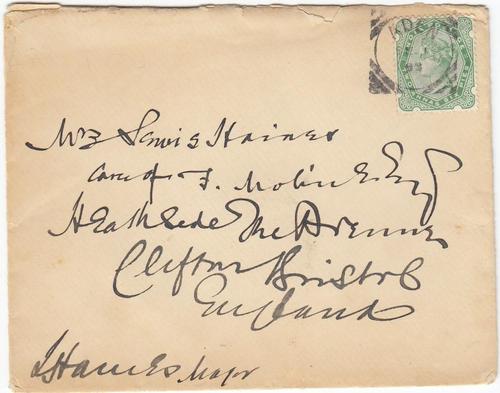 Mrs Lewis Haines
Care of F. Moline Esq
Heathside The Avenue
Clifton Bristol
England
LHaines Major